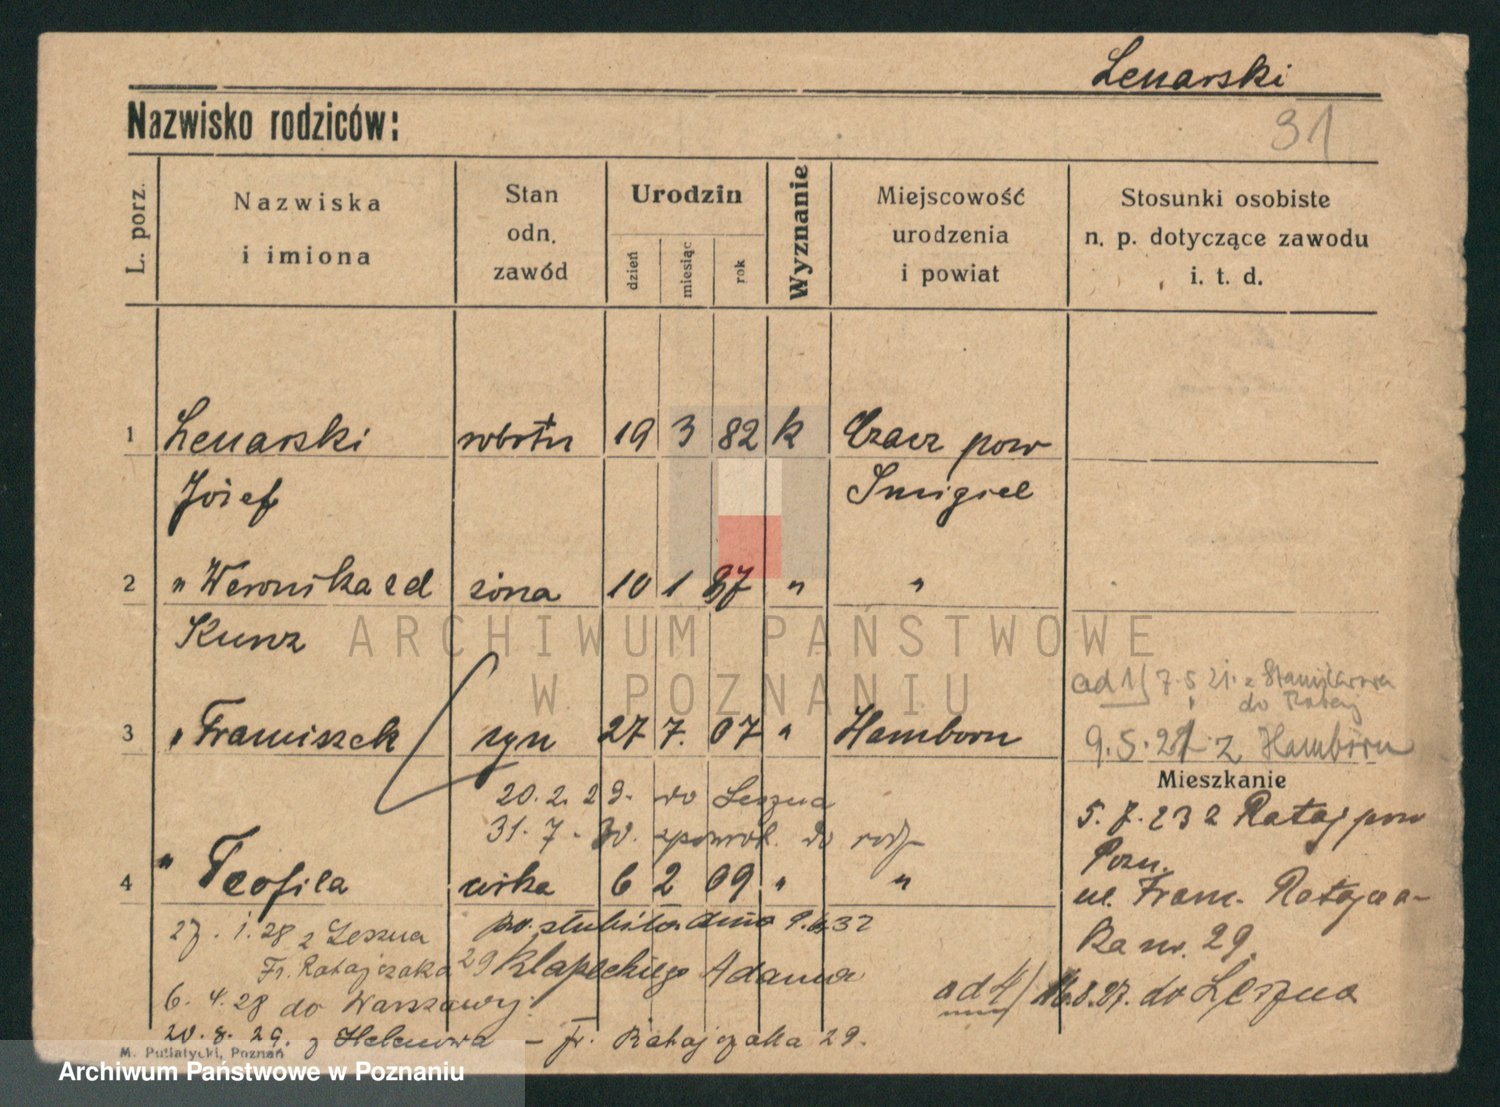 Lenarski
31
Nazwisko rodziców:
L. porz.
Nazwiska
i imiona
Stan
odn.
zawód
Urodzin
dzień
miesiąc
rok
Wyznanie
Miejscowość
urodzenia
i powiat
Stosunki osobiste
n. p. dotyczące zawodu
i. t. d.
1 Lenarski robotn 19 3 82 k Czacz pow
Józef Smigiel
2 " Weronika zd żona 10 1 87 " "
Kunz
ARCHIWUM PAŃSTWOWE
W POZNANIU
ad 1) 7.5.21. z
do Rataj
3 " Franciszek syn 27 7. 07 " Hamborn
9.5.21 z Hamborn
Mieszkanie
20.2.29. do Leszna
31.7.30. zpowrot. do rodz
5.7.23 z Rataj pow
Pozn.
4 " Teofila córka 6 2 09 " "
ul. Franc. Ratajcza-
ka nr. 29.
27.1.28 z Leszna
Fr. Ratajczaka 29
po. ślubiła dnia 9.6.32
Klapeckiego Adama
6.4.28 do Warszawy.
ad 4) 16.8.27. do Leszna
20.8.29. z Helenowa – Fr. Ratajczaka 29.
M. Putiatycki, Poznań
Archiwum Państwowe w Poznaniu